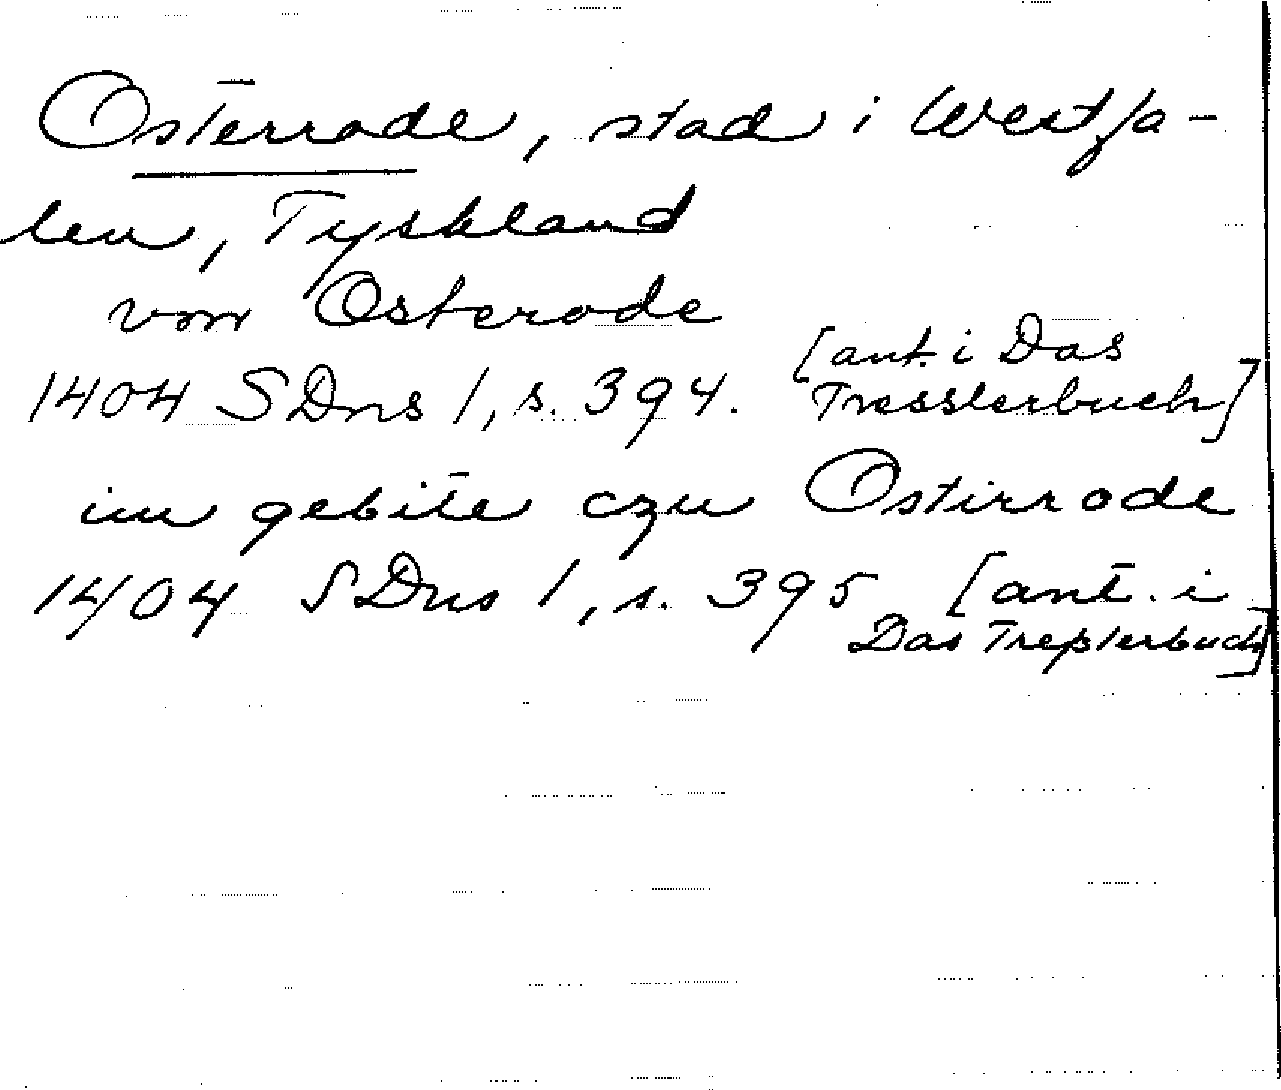 Osterrode, stad i Westfa-
len, Tyskland
von Osterode
1404 SDns 1, s. 394. [ant. i Das Tresslerbuch]
im gebite czu Ostirrode
1404 SDns 1, s. 395 [ant. i
Das Treßlerbuch]